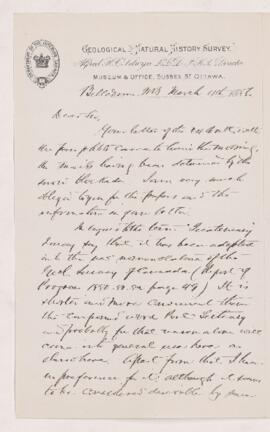 GEOLOGICAL & NATURAL HISTORY SURVEY.
Alfred R. C. Selwyn LL.D. F.R.S. Director
MUSEUM & OFFICE, SUSSEX ST. OTTAWA.
March 11th
Dear Sir,
Your letter of the with
the pamphlets came to hand this morning,
the mails having been detained by the
snow blockade. I am very much
obliged to you for the papers and the
information in your letter.
In regard to the term
I may say that it has been adopted
into the nomenclature of the
Geol. Survey of Canada (Report of
Progress 1880-81-82 page ) It is
shorter and more convenient than
the compound word Post Tertiary
and probably for that reason alone will
come into general use here or
elsewhere. Apart from that I have
no preference for it, although it seems
to be considered desirable by some